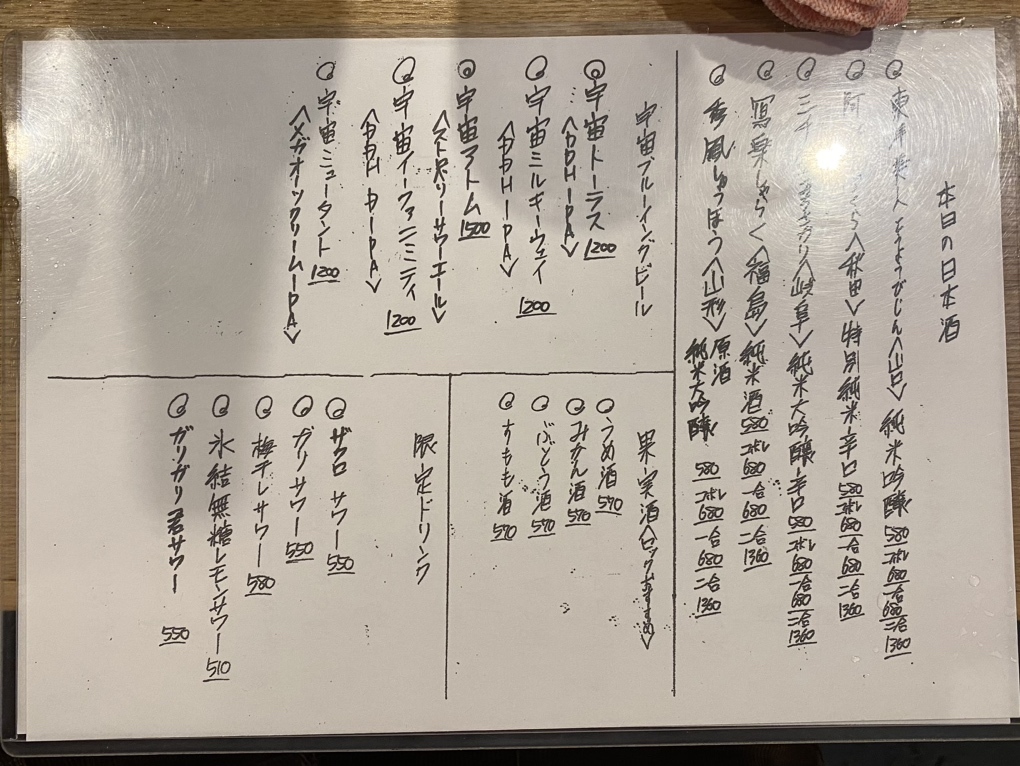 本日の日本酒
◎東洋美人とうようびじん〈山口〉純米吟醸 580 コボレ 680 一合 680 二合 1360
◎阿 くら〈秋田〉特別純米辛口 580 コボレ 680 一合 680 二合 1360
◎三千 〈岐阜〉純米大吟醸辛口 580 コボレ 680 一合 680 二合 1360
◎寫楽しゃらく〈福島〉純米酒 580 コボレ 680 一合 680 二合 1360
◎秀鳳しゅうほう〈山形〉原酒 純米大吟醸 580 コボレ 680 一合 680 二合 1360
宇宙ブルーイングビール
◎宇宙トーラス 1200
〈DDH IPA〉
◎宇宙ミルキーウェイ 1200
〈DDH IPA〉
◎宇宙アトム 1500
〈ストロベリーサワーエール〉
◎宇宙イーファニニティ 1200
〈DDH DIPA〉
◎宇宙ミュータント 1200
〈メガオーツクリームIPA〉
果実酒〈ロックおすすめ〉
◎うめ酒 570
◎みかん酒 570
◎ぶどう酒 570
◎すもも酒 570
限定ドリンク
◎ザクロサワー 550
◎ガリサワー 550
◎梅干しサワー 580
◎氷結無糖レモンサワー 510
◎ガリガリ君サワー 550